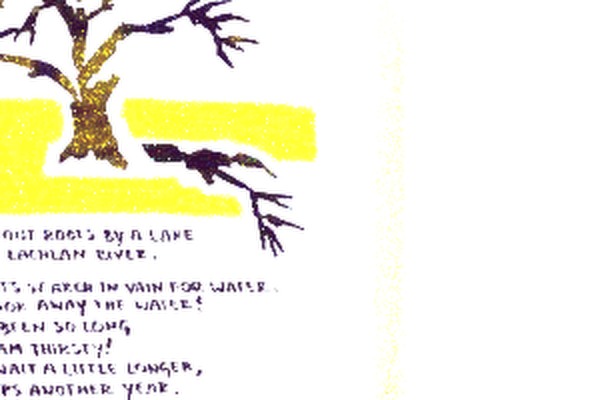 OUT ROOTS BY A LAKE
LACHLAN RIVER.
TS SEARCH IN VAIN FOR WATER.
OOK AWAY THE WATER?
BEEN SO LONG
AM THIRSTY!
WAIT A LITTLE LONGER,
PS ANOTHER YEAR.